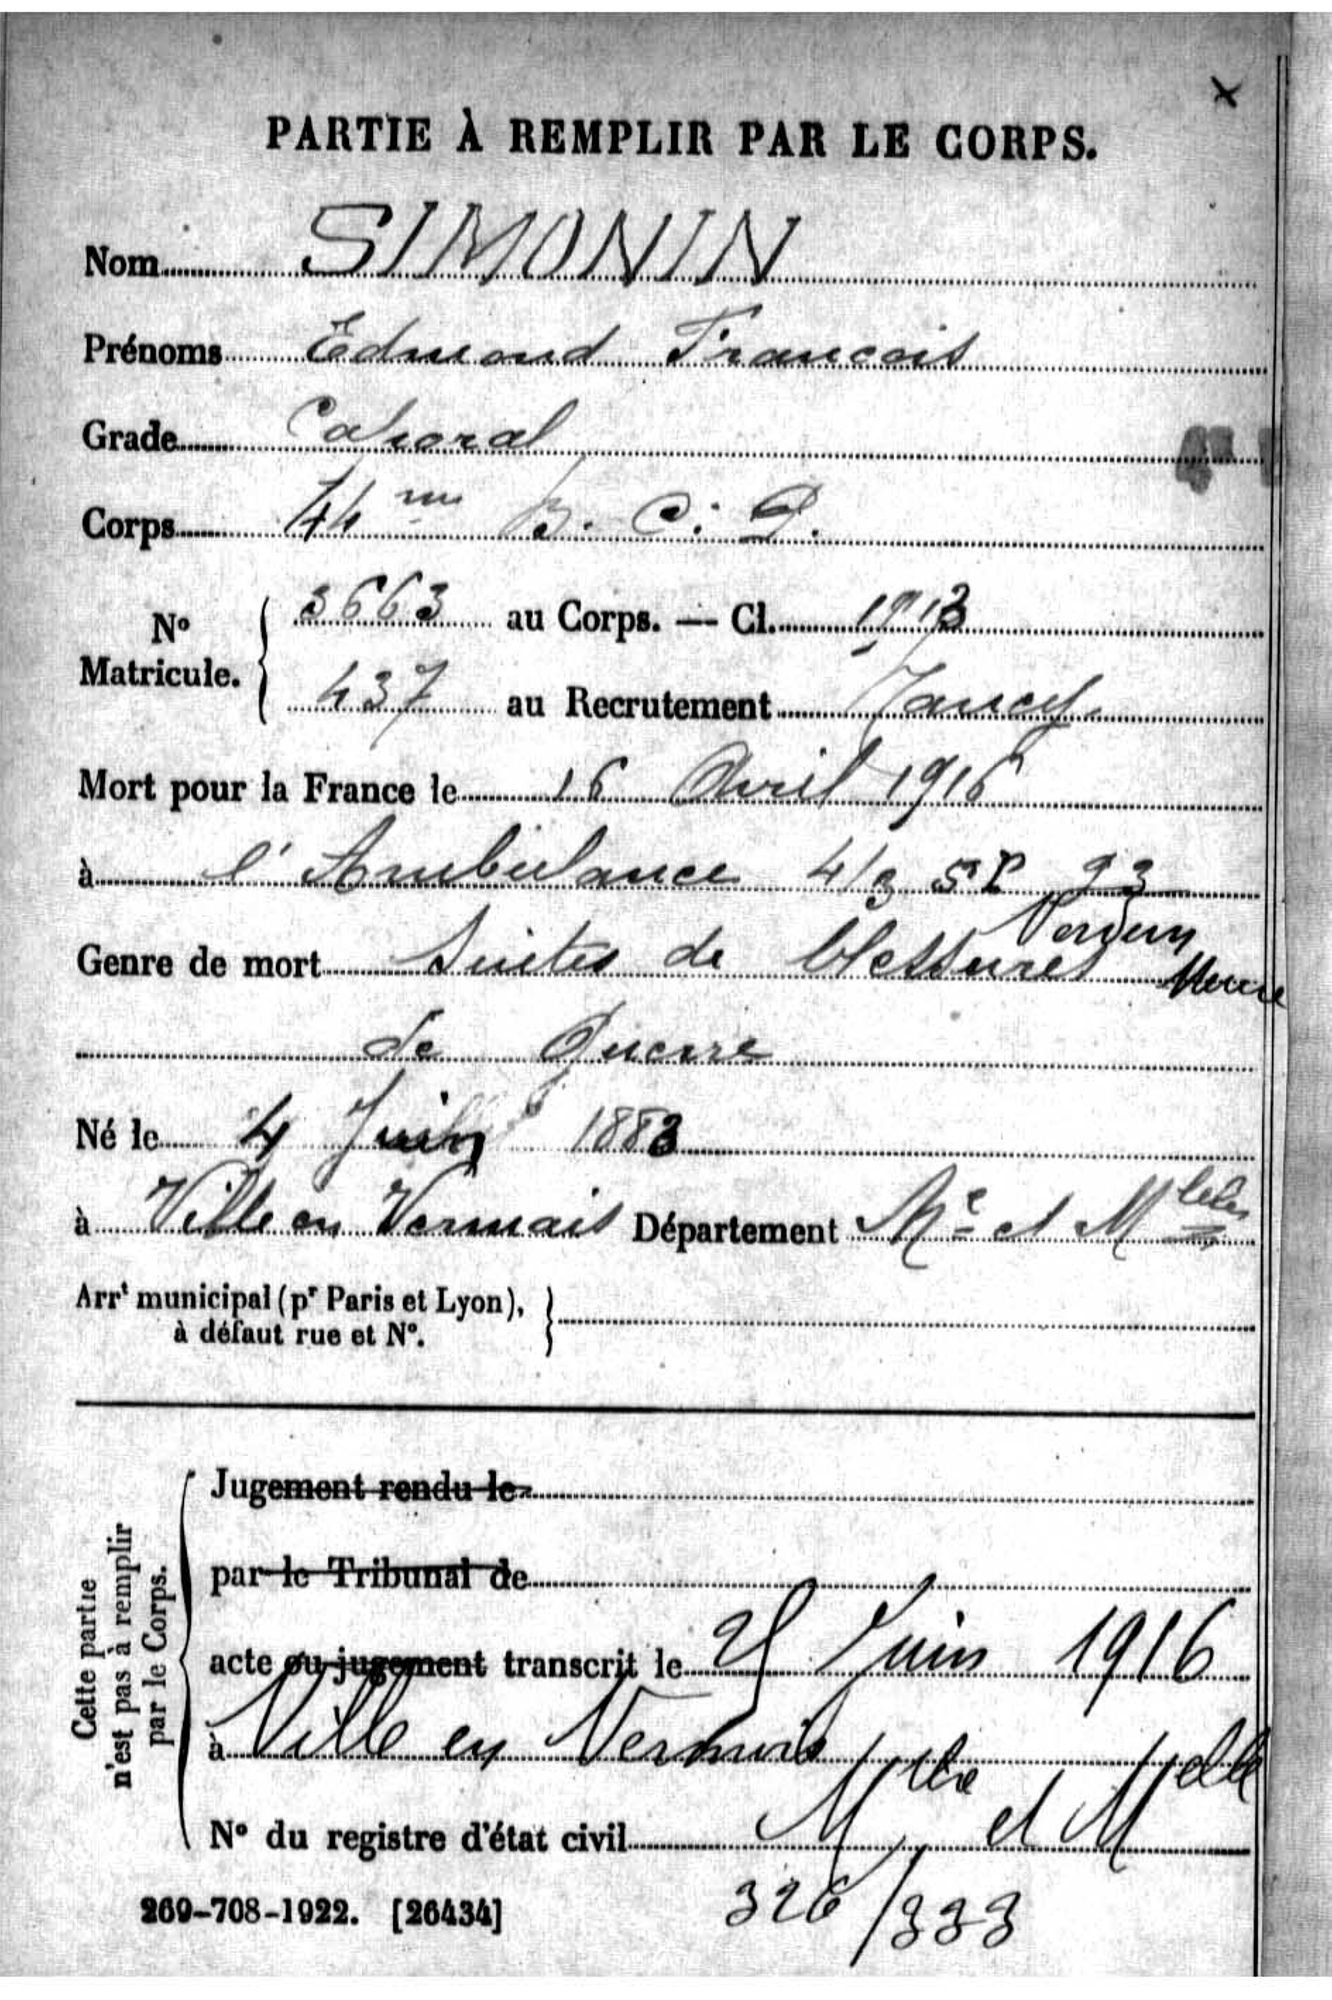 PARTIE À REMPLIR PAR LE CORPS.
Nom SIMONIN
Prénoms Edmond Francois
Grade Caporal
Corps 44me B. C. P.
No Matricule. 3663 au Corps. — Cl. 1913
437 au Recrutement Nancy
Mort pour la France le 16 Avril 1916
à l'Ambulance 4/3 SP 93
Verdun
Genre de mort Suites de blessures Meuse
de Guerre
Né le 4 Juin 1883
à Ville en Vermois Département Mthe et Mlle
Arrt municipal (pr Paris et Lyon),
à défaut rue et No.
Cette partie
n'est pas à remplir
par le Corps.
Jugement rendu le
par le Tribunal de
acte ou jugement transcrit le Juin 1916
à Ville en Vermois
No du registre d'état civil Mthe et Mlle
269-708-1922. [26434]
326/333